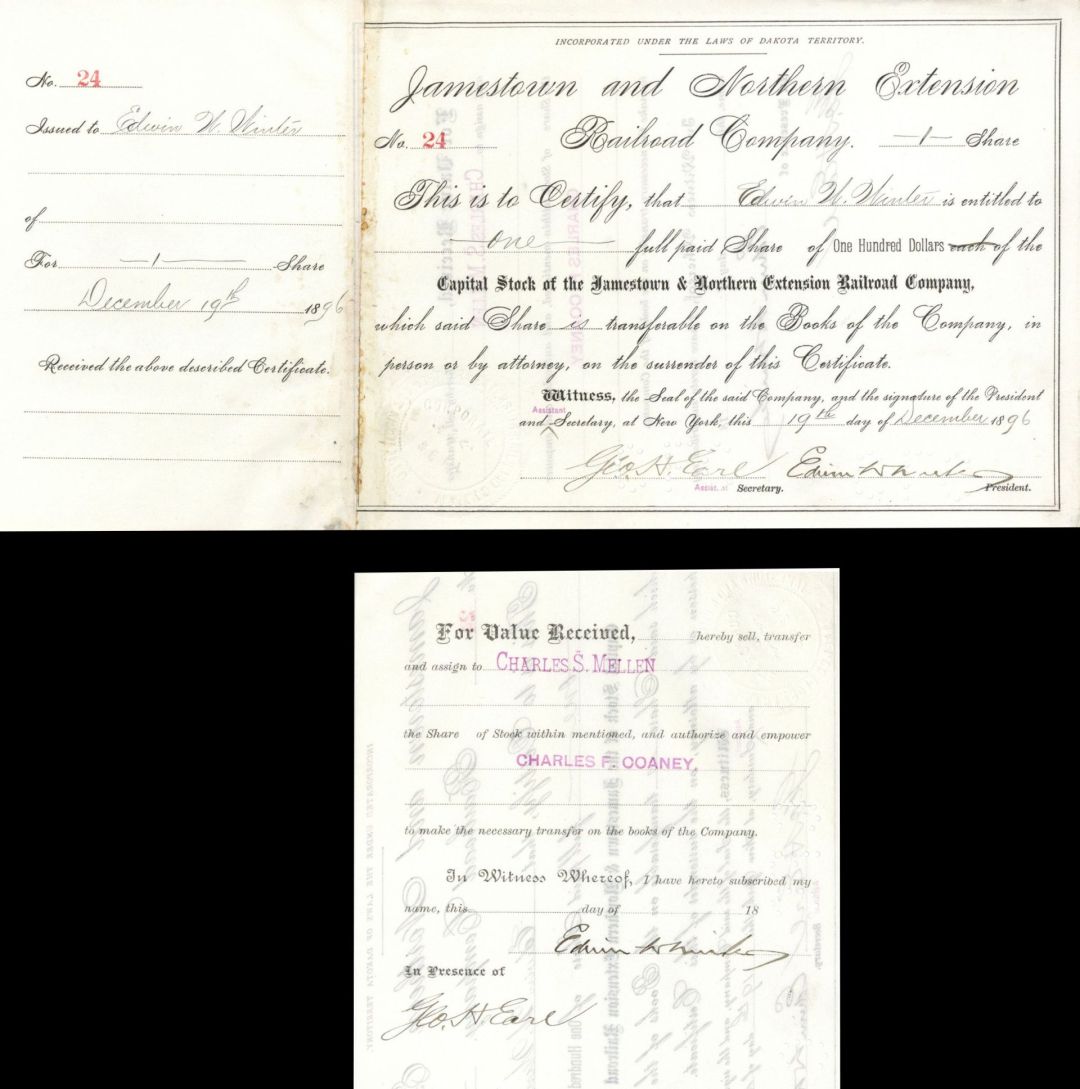 No. 24
Issued to Edwin W. Winter
of
For —1— Share
December 19th 1896
Received the above described Certificate.
INCORPORATED UNDER THE LAWS OF DAKOTA TERRITORY.
Jamestown and Northern Extension
No. 24 Railroad Company. —1— Share
This is to Certify, that Edwin W. Winter is entitled to
—one— full paid Share of One Hundred Dollars each of the
Capital Stock of the Jamestown & Northern Extension Railroad Company,
which said Share is transferable on the Books of the Company, in
person or by attorney, on the surrender of this Certificate.
Witness, the Seal of the said Company, and the signature of the President
Assistant
and Secretary, at New York, this 19th day of December 1896
Geo. H. Earl Edwin W Winter
Assist. Secretary. President.
For Value Received, hereby sell, transfer
and assign to CHARLES S. MELLEN
the Share of Stock within mentioned, and authorize and empower
CHARLES F. COANEY,
to make the necessary transfer on the books of the Company.
In Witness Whereof, I have hereto subscribed my
name, this day of 18
Edwin W Winter
In Presence of
Geo. H. Earl